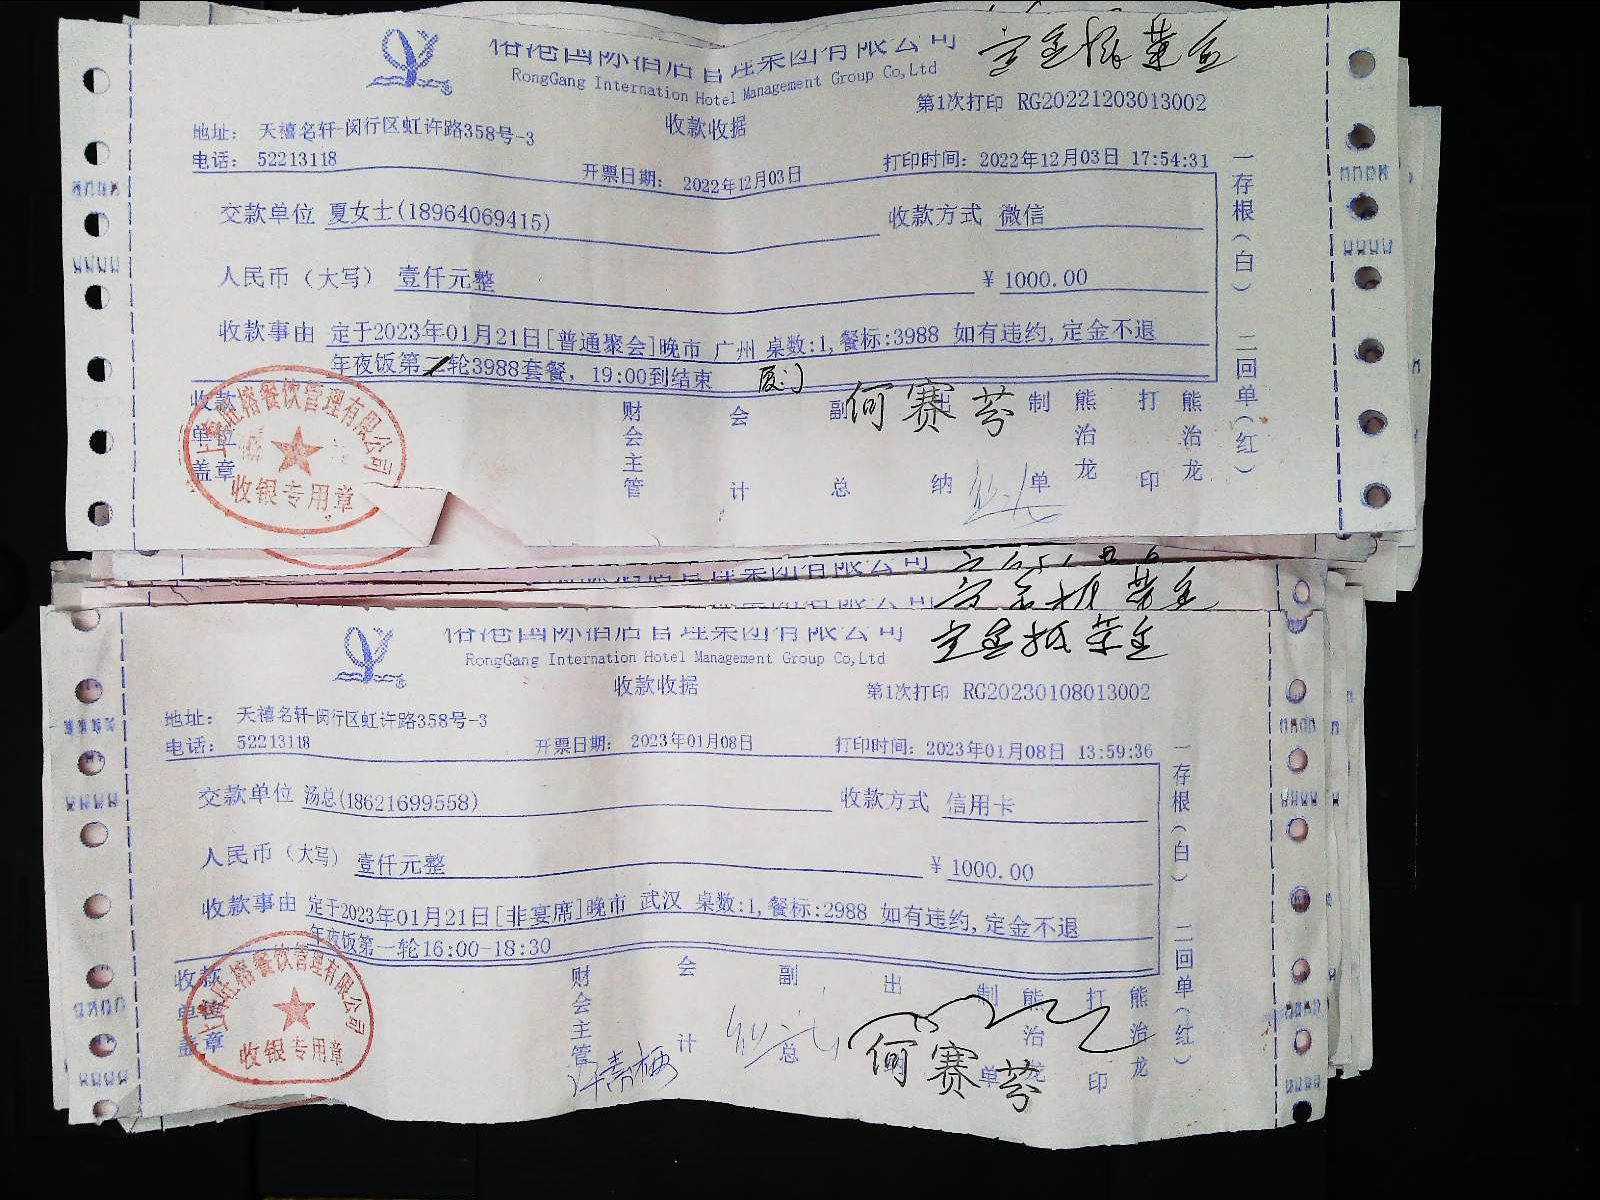 榕港国际酒店管理集团有限公司 定金抵菜金
RongGang Internation Hotel Management Group Co,Ltd
第1次打印 RG20221203013002
收款收据
地址: 天禧名轩-闵行区虹许路358号-3
电话: 52213118 开票日期: 2022年12月03日 打印时间: 2022年12月03日 17:54:31
交款单位 夏女士(18964069415) 收款方式 微信
人民币（大写） 壹仟元整 ¥ 1000.00
收款事由 定于2023年01月21日[普通聚会]晚市 广州 桌数:1,餐标:3988 如有违约,定金不退
年夜饭第二轮3988套餐, 19:00到结束 厦门
收款单位盖章 财会主管 会计 副总 出纳 何赛芬 制单 熊治龙 打印 熊治龙
收银专用章
一存根(白) 二回单(红)
国际酒店管理集团有限公司
榕港国际酒店管理集团有限公司 定金抵菜金
RongGang Internation Hotel Management Group Co,Ltd
收款收据 第1次打印 RG20230108013002
地址: 天禧名轩-闵行区虹许路358号-3
电话: 52213118 开票日期: 2023年01月08日 打印时间: 2023年01月08日 13:59:36
交款单位 汤总(18621699558) 收款方式 信用卡
人民币（大写） 壹仟元整 ¥ 1000.00
收款事由 定于2023年01月21日[非宴席]晚市 武汉 桌数:1,餐标:2988 如有违约,定金不退
年夜饭第一轮16:00-18:30
收款单位盖章 财会主管 会计 副总 出纳 何赛芬 制单 熊治龙 打印 熊治龙
收银专用章
一存根(白) 二回单(红)